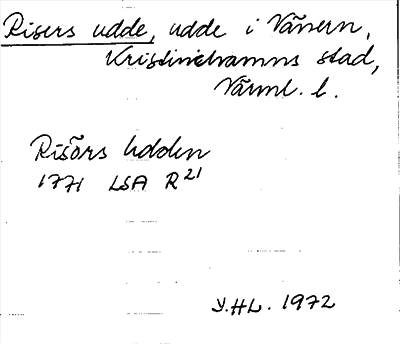 Risers udde, udde i Vänern,
Kristinehamns stad,
Värml. l.
Risörs Udden
1771 LSA R21
Y.HL. 1972